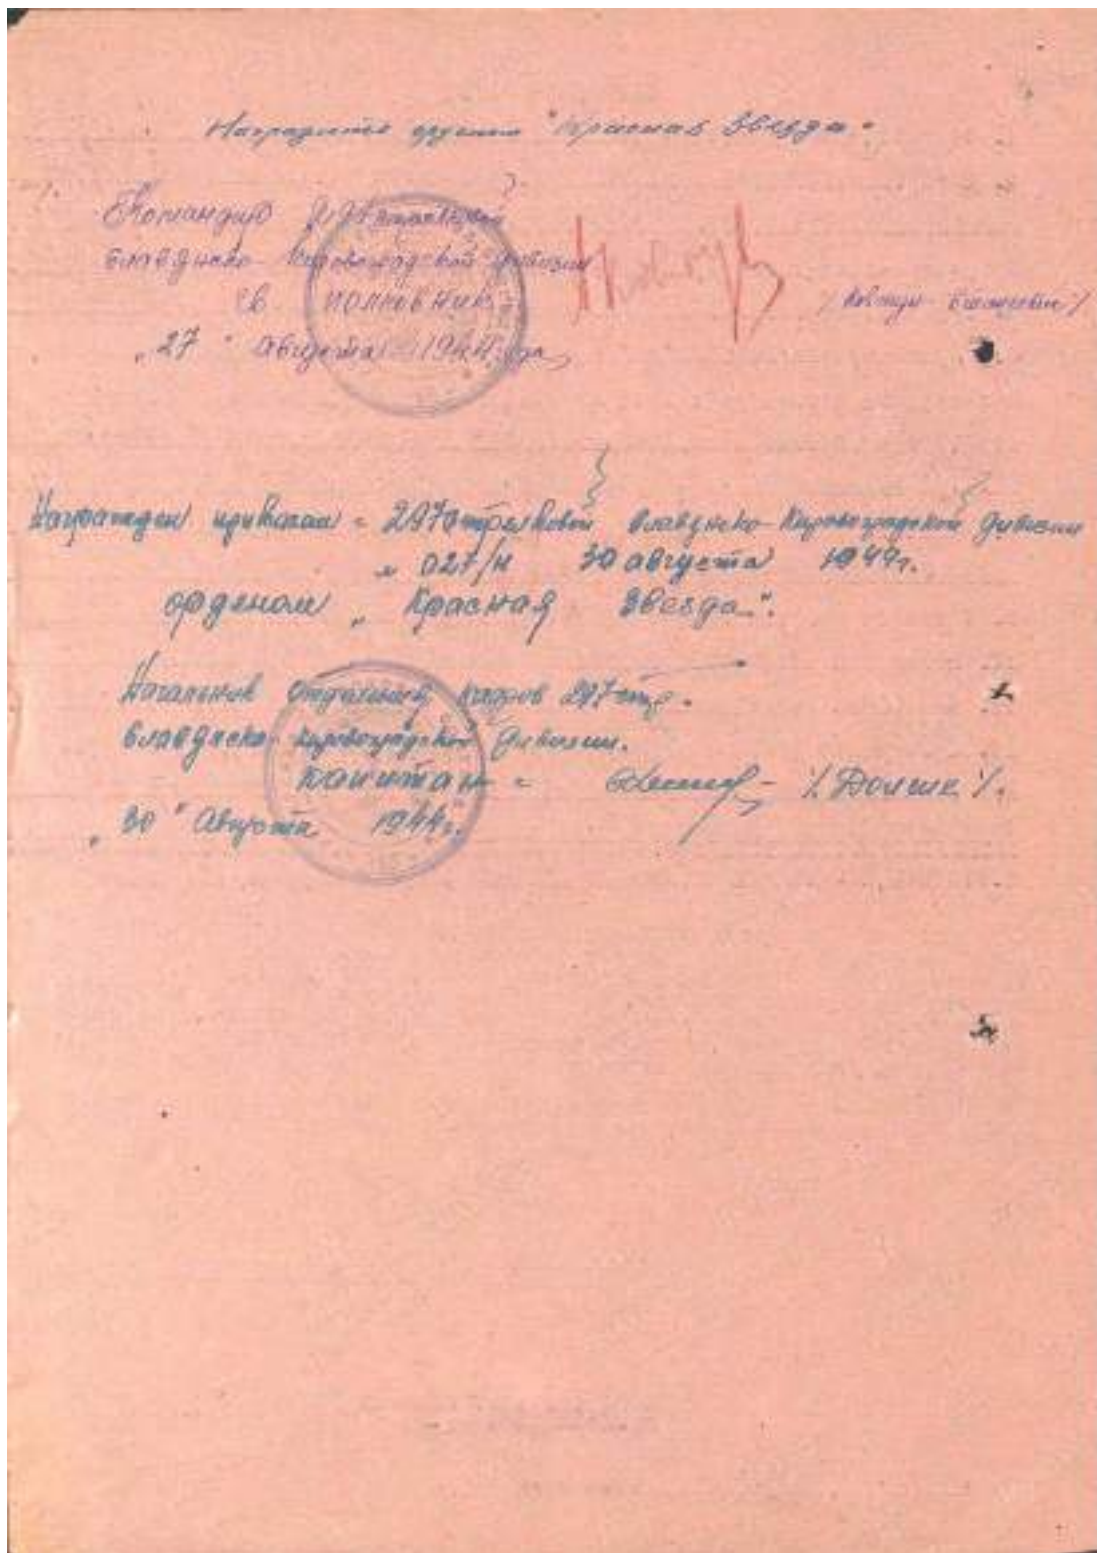 Наградить орденом "Красная Звезда".
Командир 297 стрелковой
Славянско-Кировоградской дивизии
гв полковник
"27" Августа 1944 года
Награжден приказом - 297 стрелковой Славянско-Кировоградской дивизии
№ 027/Н 30 августа 1944г.
орденом "Красная Звезда".
Начальник отделения кадров 297 стр.
Славянско-Кировоградской дивизии.
капитан -
"30" Августа 1944г.